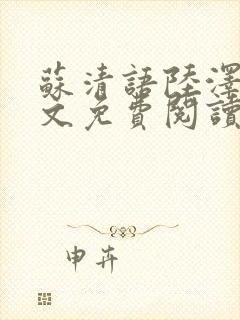 蘇清語陸澤
文免費閱讀
申卉